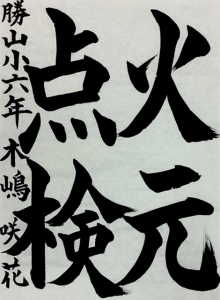 火元
点検
勝山小六年 木嶋 咲花